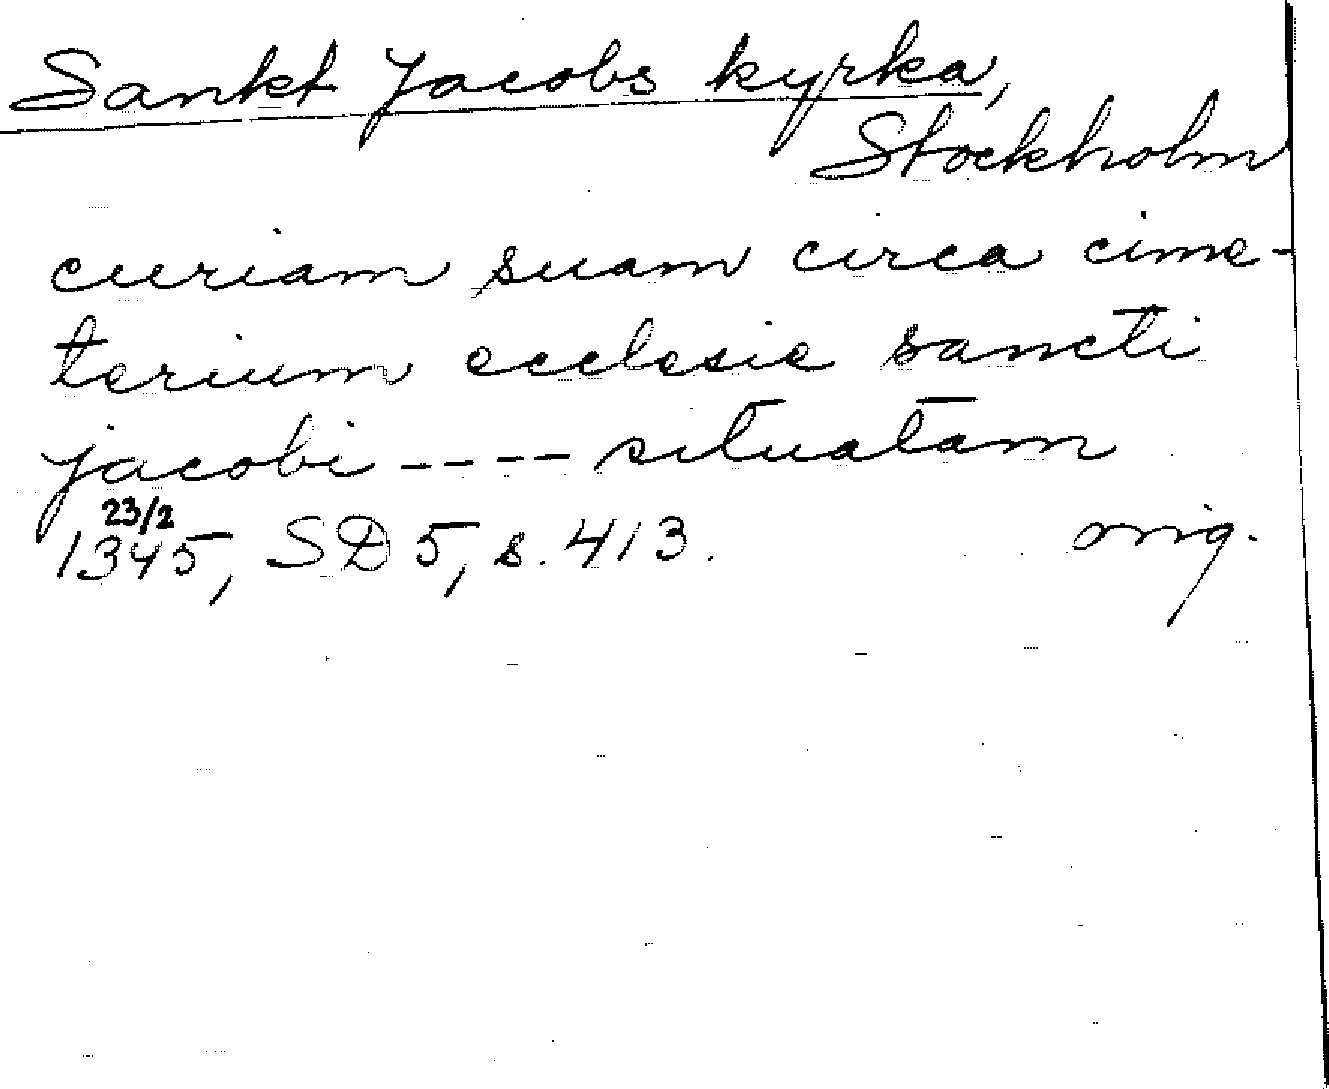 Sankt Jacobs kyrka,
Stockholm
curiam suam circa cime-
terium ecclesie sancti
jacobi ---- situatam
23/2
1345, SD 5, s. 413. orig.